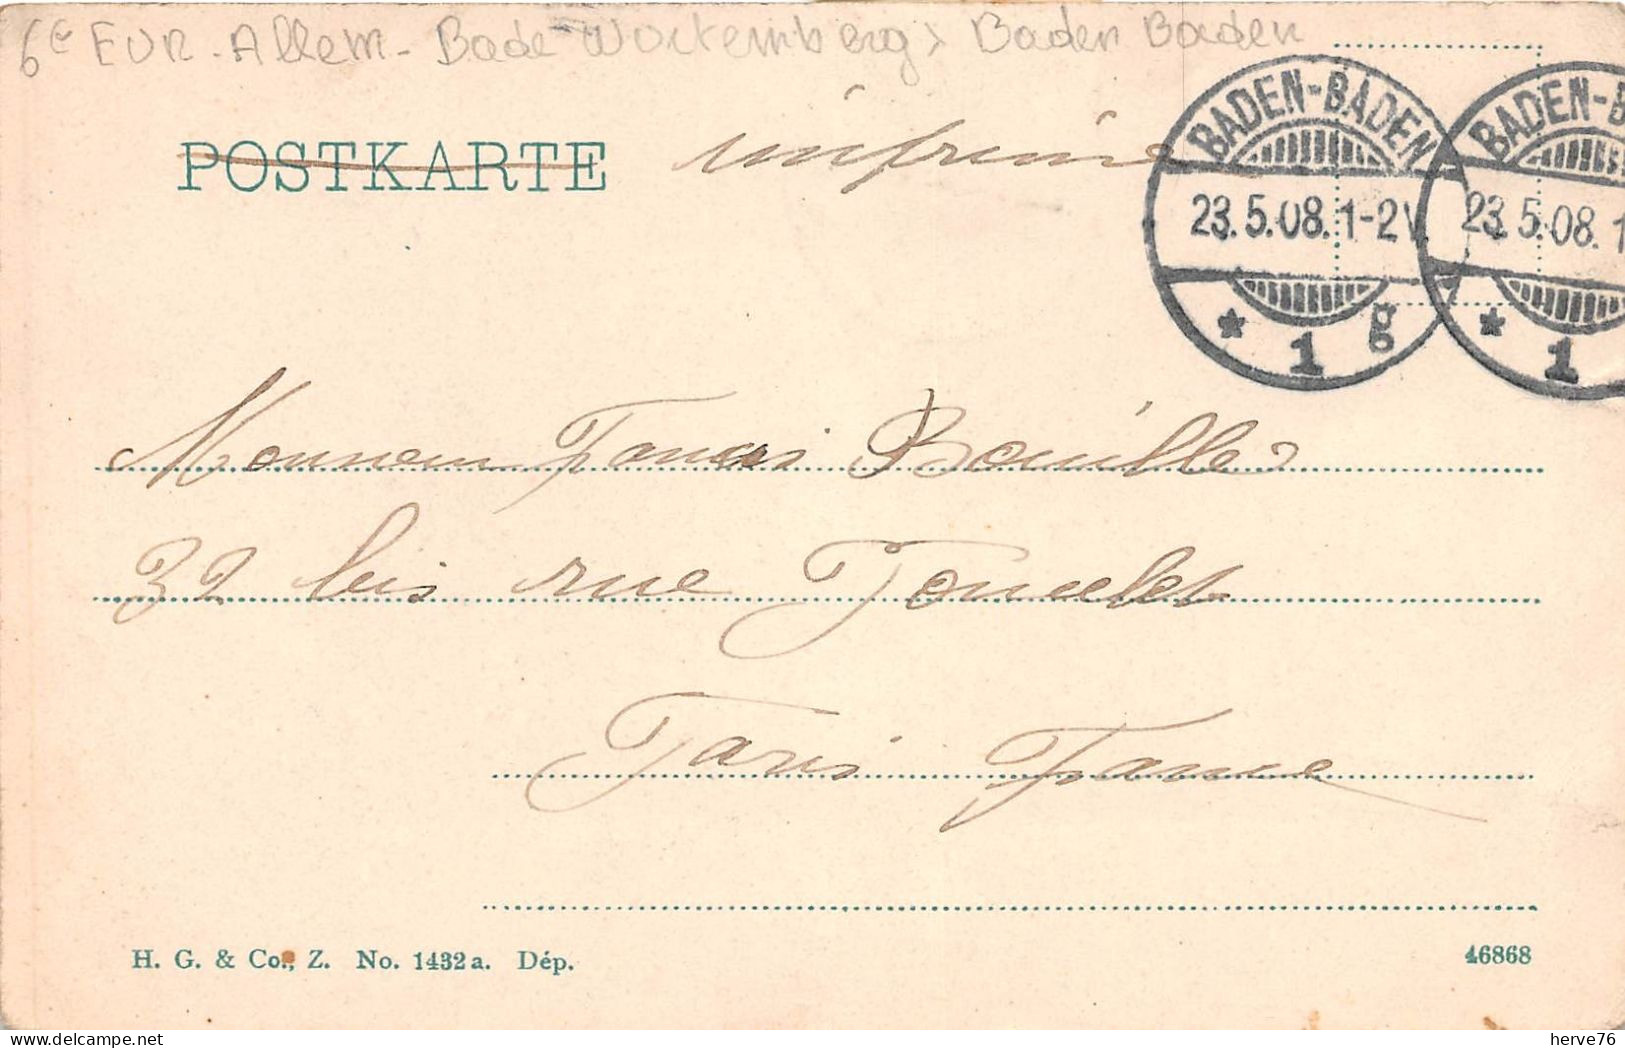 6€ EUR - Allem - Bade Wurtemberg > Baden Baden
POSTKARTE imprimé
BADEN-BADEN
23.5.08.1-2V.
* 1 g
BADEN-B
23.5.08.1
* 1
Monsieur Francis Bouilles
32 bis rue Poncelet
Paris France
H. G. & Co., Z. No. 1432a. Dép.
46868
herve76